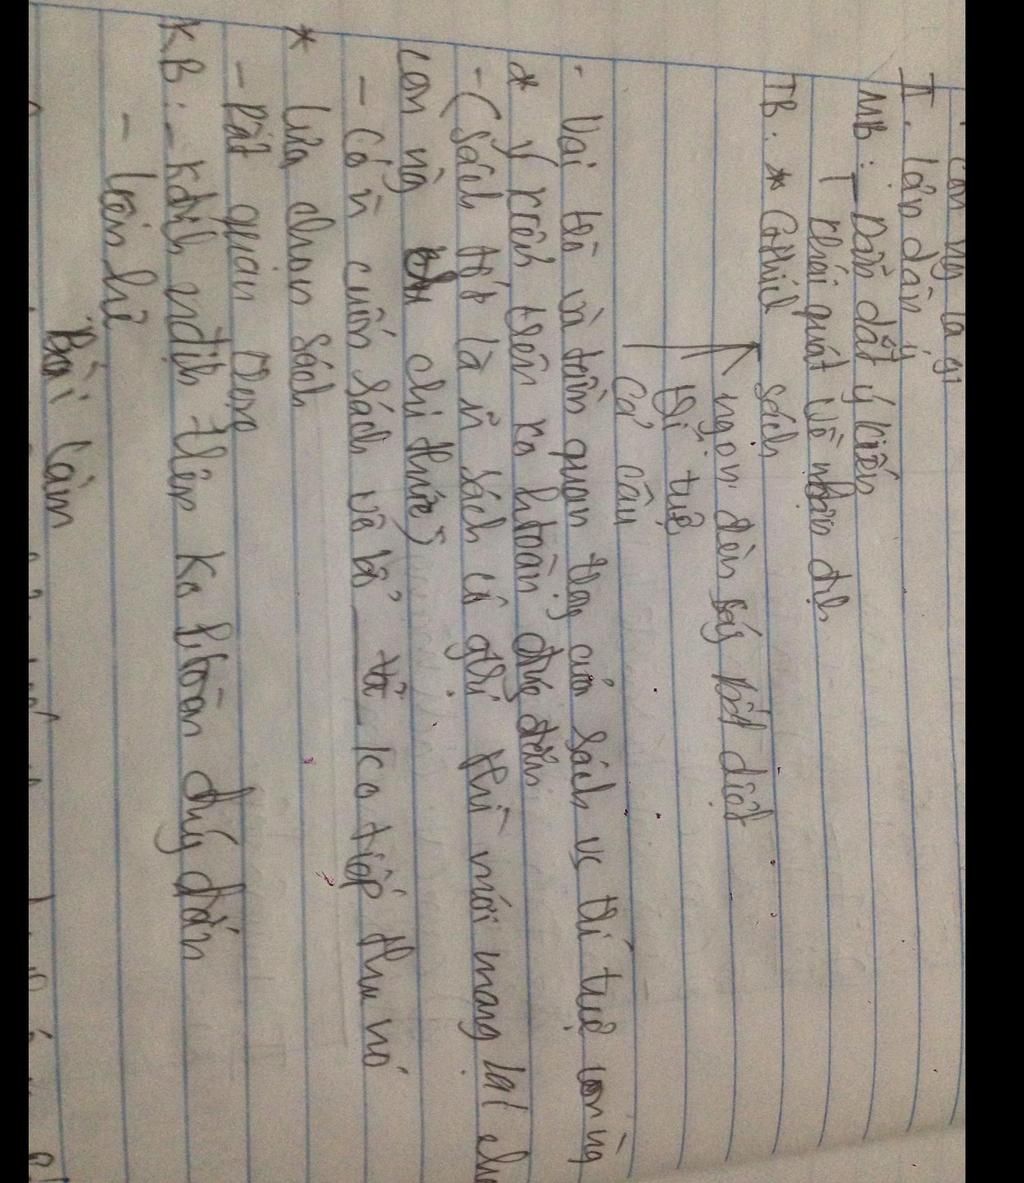 con ng là gì
II. lập dàn ý
MB: - Dẫn dắt ý kiến
- khái quát về nhận định
TB: * Gthích sách
ngọn đèn sáng bất diệt
trí tuệ
cả câu
- Vai trò và tầm quan trọng của sách vs trí tuệ con ng
* ý kiến trên ko htoàn đúg đắn
- (Sách tốt là n sách có giá trị mới mang lại cho
con ng chi thức)
- Có n cuốn sách vô bổ ko tiếp thu nó
* Lựa chọn sách
- Rất quan trọng
KB: - Kđịnh nđịnh trên ko htoàn đúg đắn
- liên hệ
Bài làm